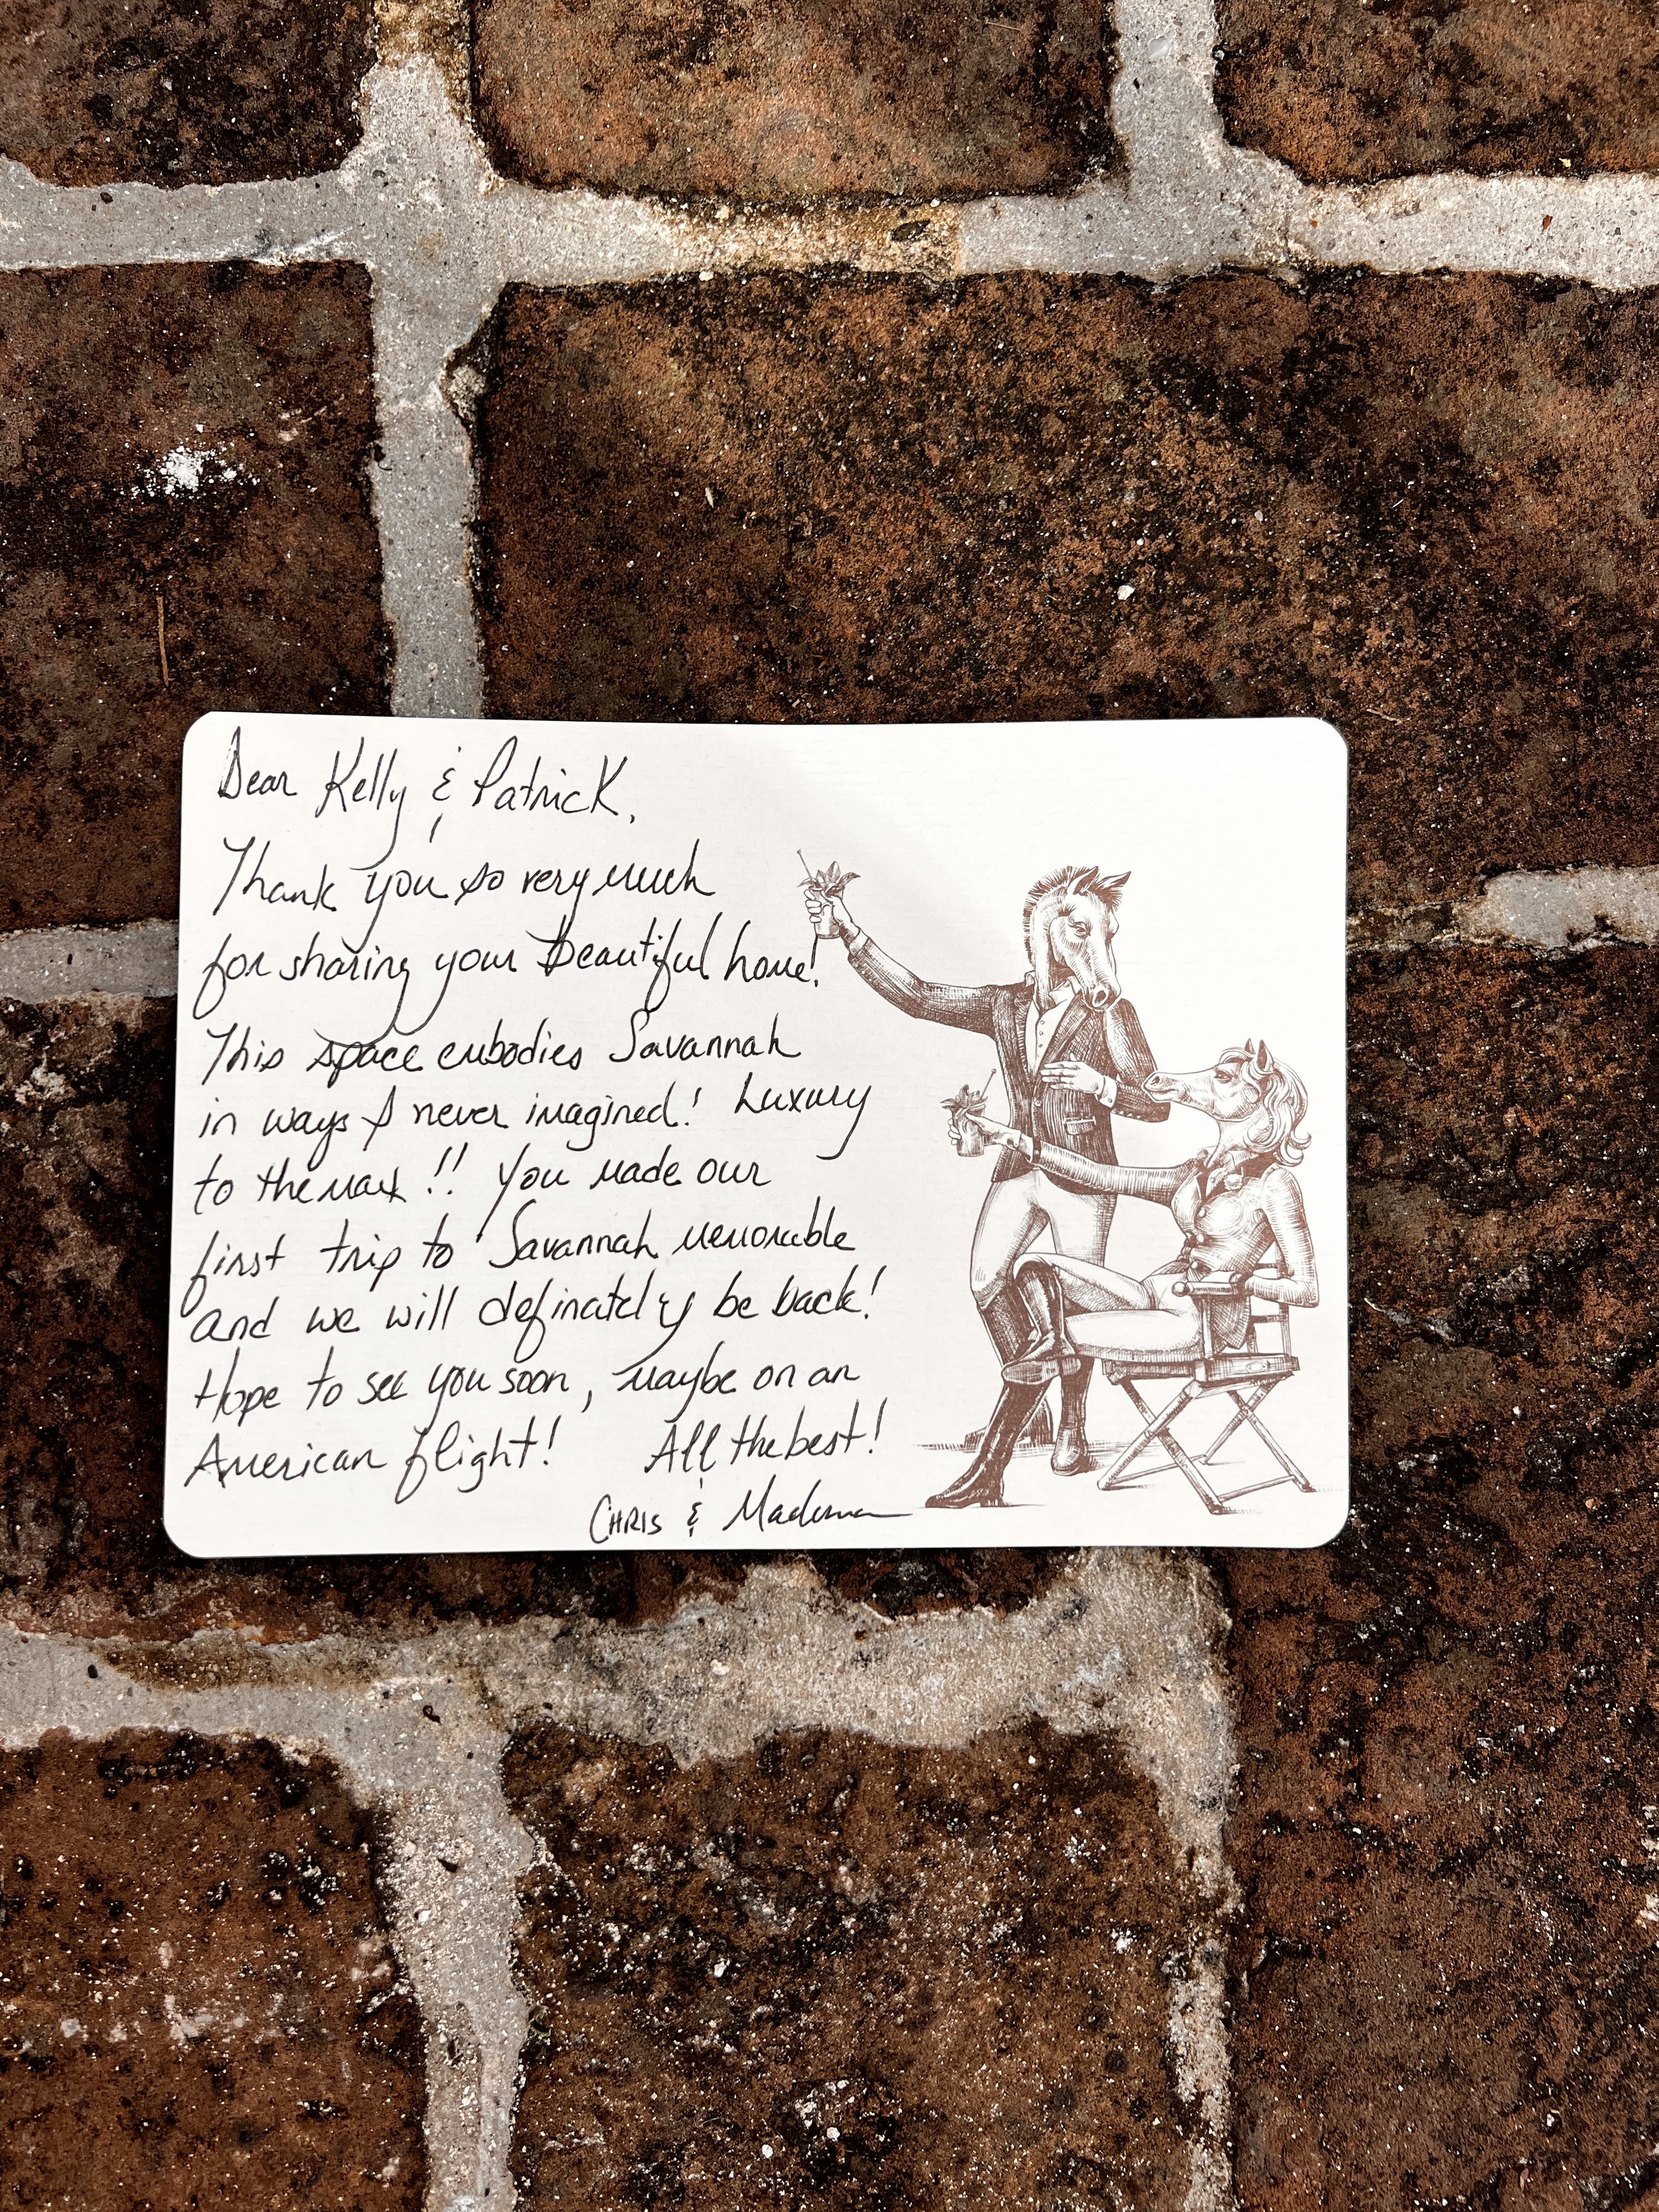 Dear Kelly & Patrick,
Thank you so very much
for sharing your beautiful home!
This space embodies Savannah
in ways I never imagined! Luxury
to the max!! You made our
first trip to Savannah memorable
and we will definately be back!
Hope to see you soon, maybe on an
American flight! All the best!
CHRIS &